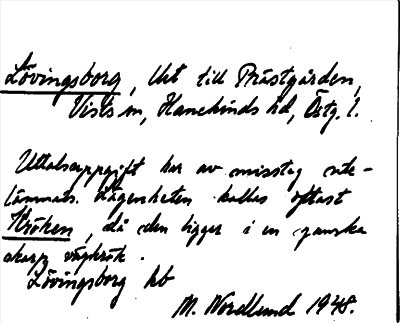 Lövingsborg, lht till Prästgården,
Vists sn, Hanekinds hd, Östg. l.
Uttalsuppgift har av misstag ute-
lämnats. Lägenheten kallas oftast
Kröken, då den ligger i en ganska
skarp vägkrök.
Lövingsborg hb
M. Nordlund 1948.